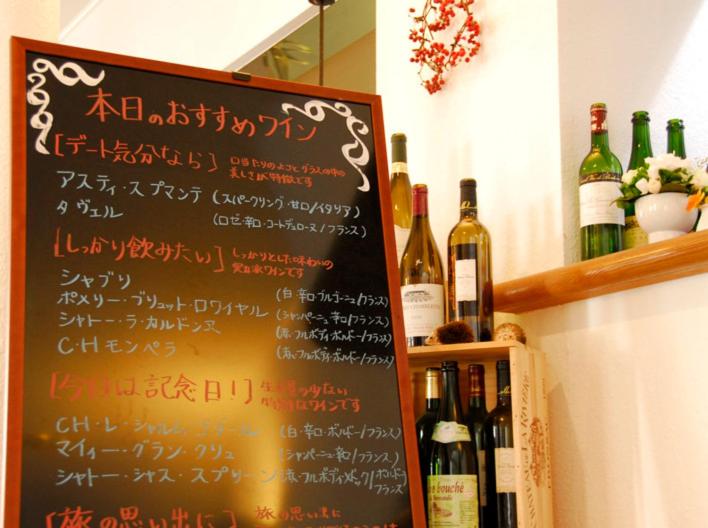 本日のおすすめワイン
[デート気分なら] 口当たりのよさとグラスの中の
美しさが特徴です
アスティ・スプマンテ (スパークリング・甘口/イタリア)
タヴェル (ロゼ・辛口・コートデュローヌ/フランス)
[しっかり飲みたい] しっかりとした味わいの
実力派ワインです
シャブリ (白・辛口・ブルゴーニュ/フランス)
ポメリー・ブリュット・ロワイヤル (シャンパーニュ・辛口/フランス)
シャトー・ラ・カルドンヌ (赤・フルボディ・ボルドー/フランス)
C・Hモンペラ (赤・フルボディ・ボルドー/フランス)
[今日は記念日!] 生産量の少ない
特別なワインです
CH・レ・シャルム・ゴダール (白・辛口・ボルドー/フランス)
マイィー・グラン・クリュ (シャンパーニュ・辛口/フランス)
シャトー・シャス・スプリーン (赤・フルボディ・メドック/ボルドー
フランス)
[旅の思い出に] 旅の思い出に
bouché